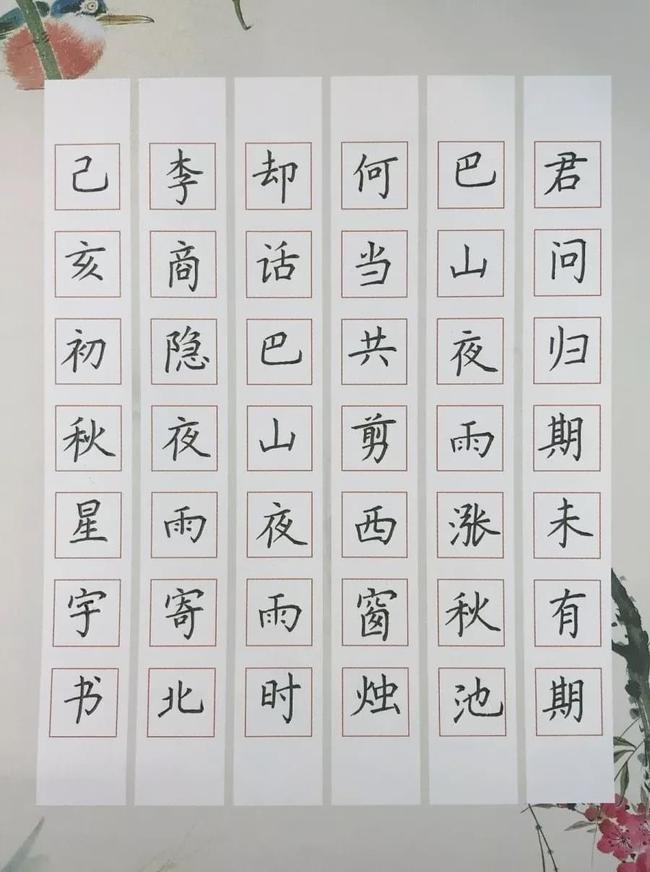 君问归期未有期
巴山夜雨涨秋池
何当共剪西窗烛
却话巴山夜雨时
李商隐夜雨寄北
己亥初秋星宇书